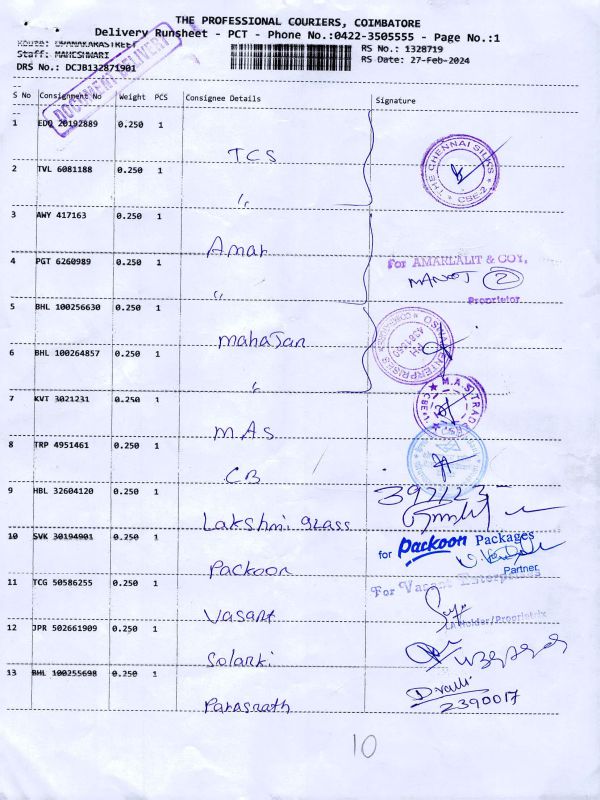 THE PROFESSIONAL COURIERS, COIMBATORE
Delivery Runsheet - PCT - Phone No.:0422-3505555 - Page No.:1
RS No.: 1328719
Staff: MAHESHWARI
RS Date: 27-Feb-2024
DRS No.: DCJB132871901
DOCUMENT DELIVERY
S No Consignment No Weight PCS Consignee Details Signature
1 EDQ 20192889 0.250 1
TCS
THE CHENNAI SILKS
CBE-2
2 TVL 6081188 0.250 1
"
3 AWY 417163 0.250 1
Amar
4 PGT 6260989 0.250 1
For AMARLALIT & COY,
"
2
Proprietor
5 BHL 100256630 0.250 1
Mahajan
ENTERPRISES
6 BHL 100264857 0.250 1
"
7 KVT 3021231 0.250 1
M.A.S
M.A.S TRAD
8 TRP 4951461 0.250 1
CB
9 HBL 32604120 0.250 1
Lakshmi glass
10 SVK 30194901 0.250 1
for Packoon Packages
Packoon
Partner
11 TCG 50586255 0.250 1
For Vasant Enterprises
Vasant
12 JPR 502661909 0.250 1
Solanki
13 BHL 100255698 0.250 1
2390017
Parasnath
10